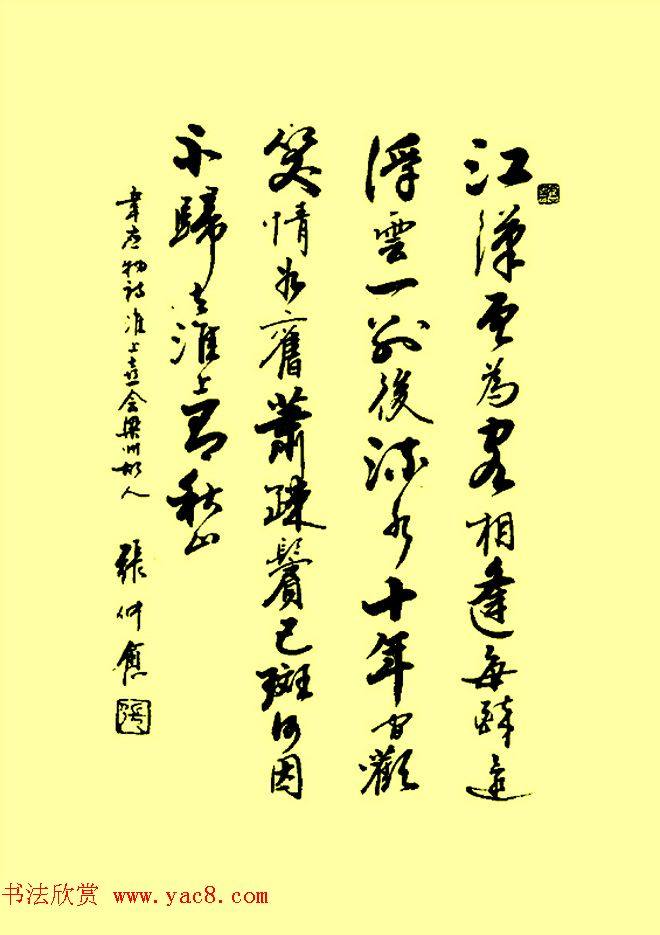 江漢曾為客相逢每醉還
浮雲一别後流水十年間歡
笑情如舊蕭疎鬢已斑何因
不歸去淮上有秋山
韋應物詩淮上喜会梁川故人 張仲愈
书法欣赏 www.yac8.com